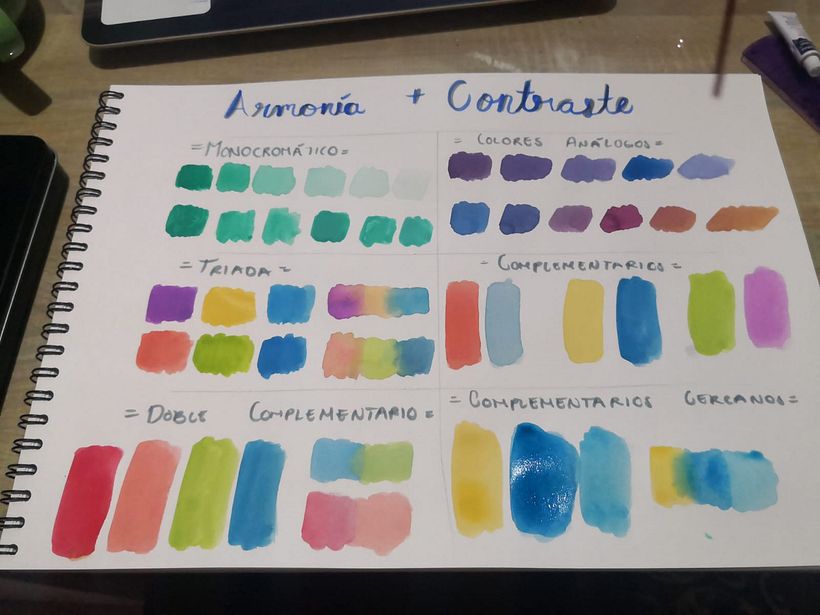 Armonía + Contraste
=MONOCROMÁTICO=
= COLORES ANÁLOGOS=
= TRIADA =
- COMPLEMENTARIOS =
= DOBLE COMPLEMENTARIO =
= COMPLEMENTARIOS CERCANOS=